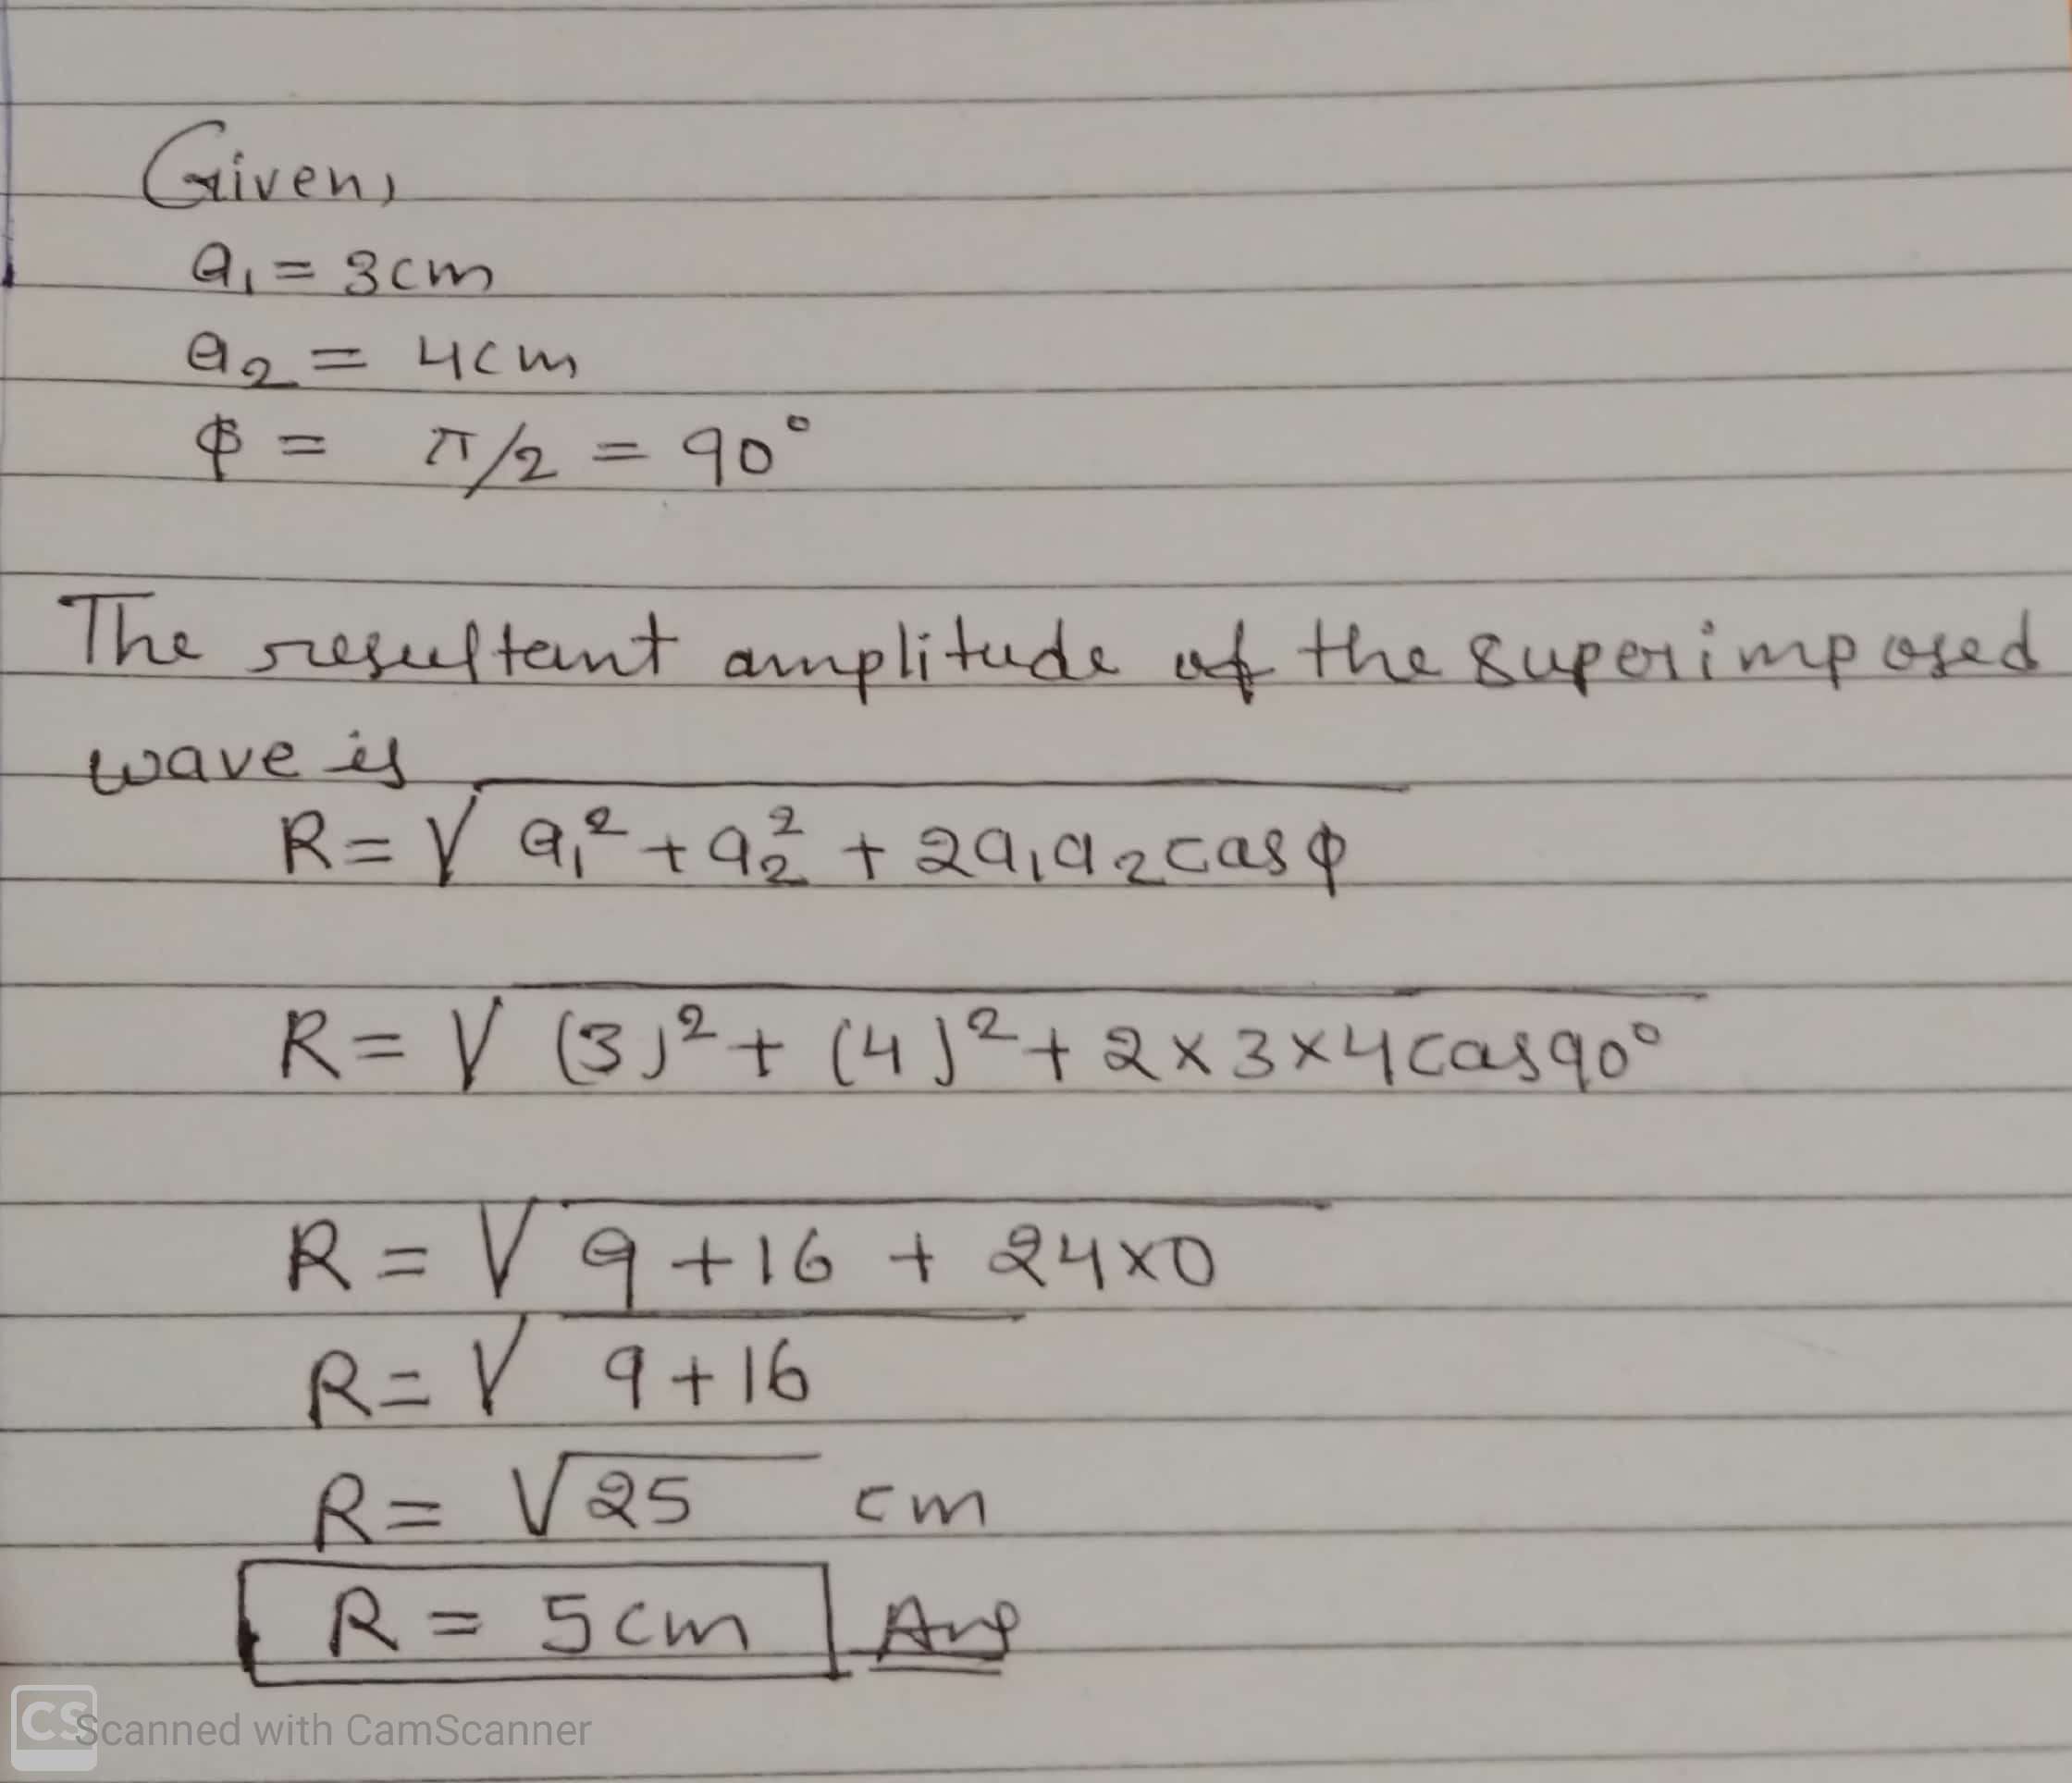 Given,
a₁ = 3cm
a₂ = 4cm
ϕ = π/2 = 90°
The resultant amplitude of the superimposed
wave is
R = √a₁² + a₂² + 2a₁a₂cosϕ
R = √(3)² + (4)² + 2×3×4cos90°
R = √9 + 16 + 24×0
R = √9 + 16
R = √25 cm
R = 5cm Ans
CS Scanned with CamScanner